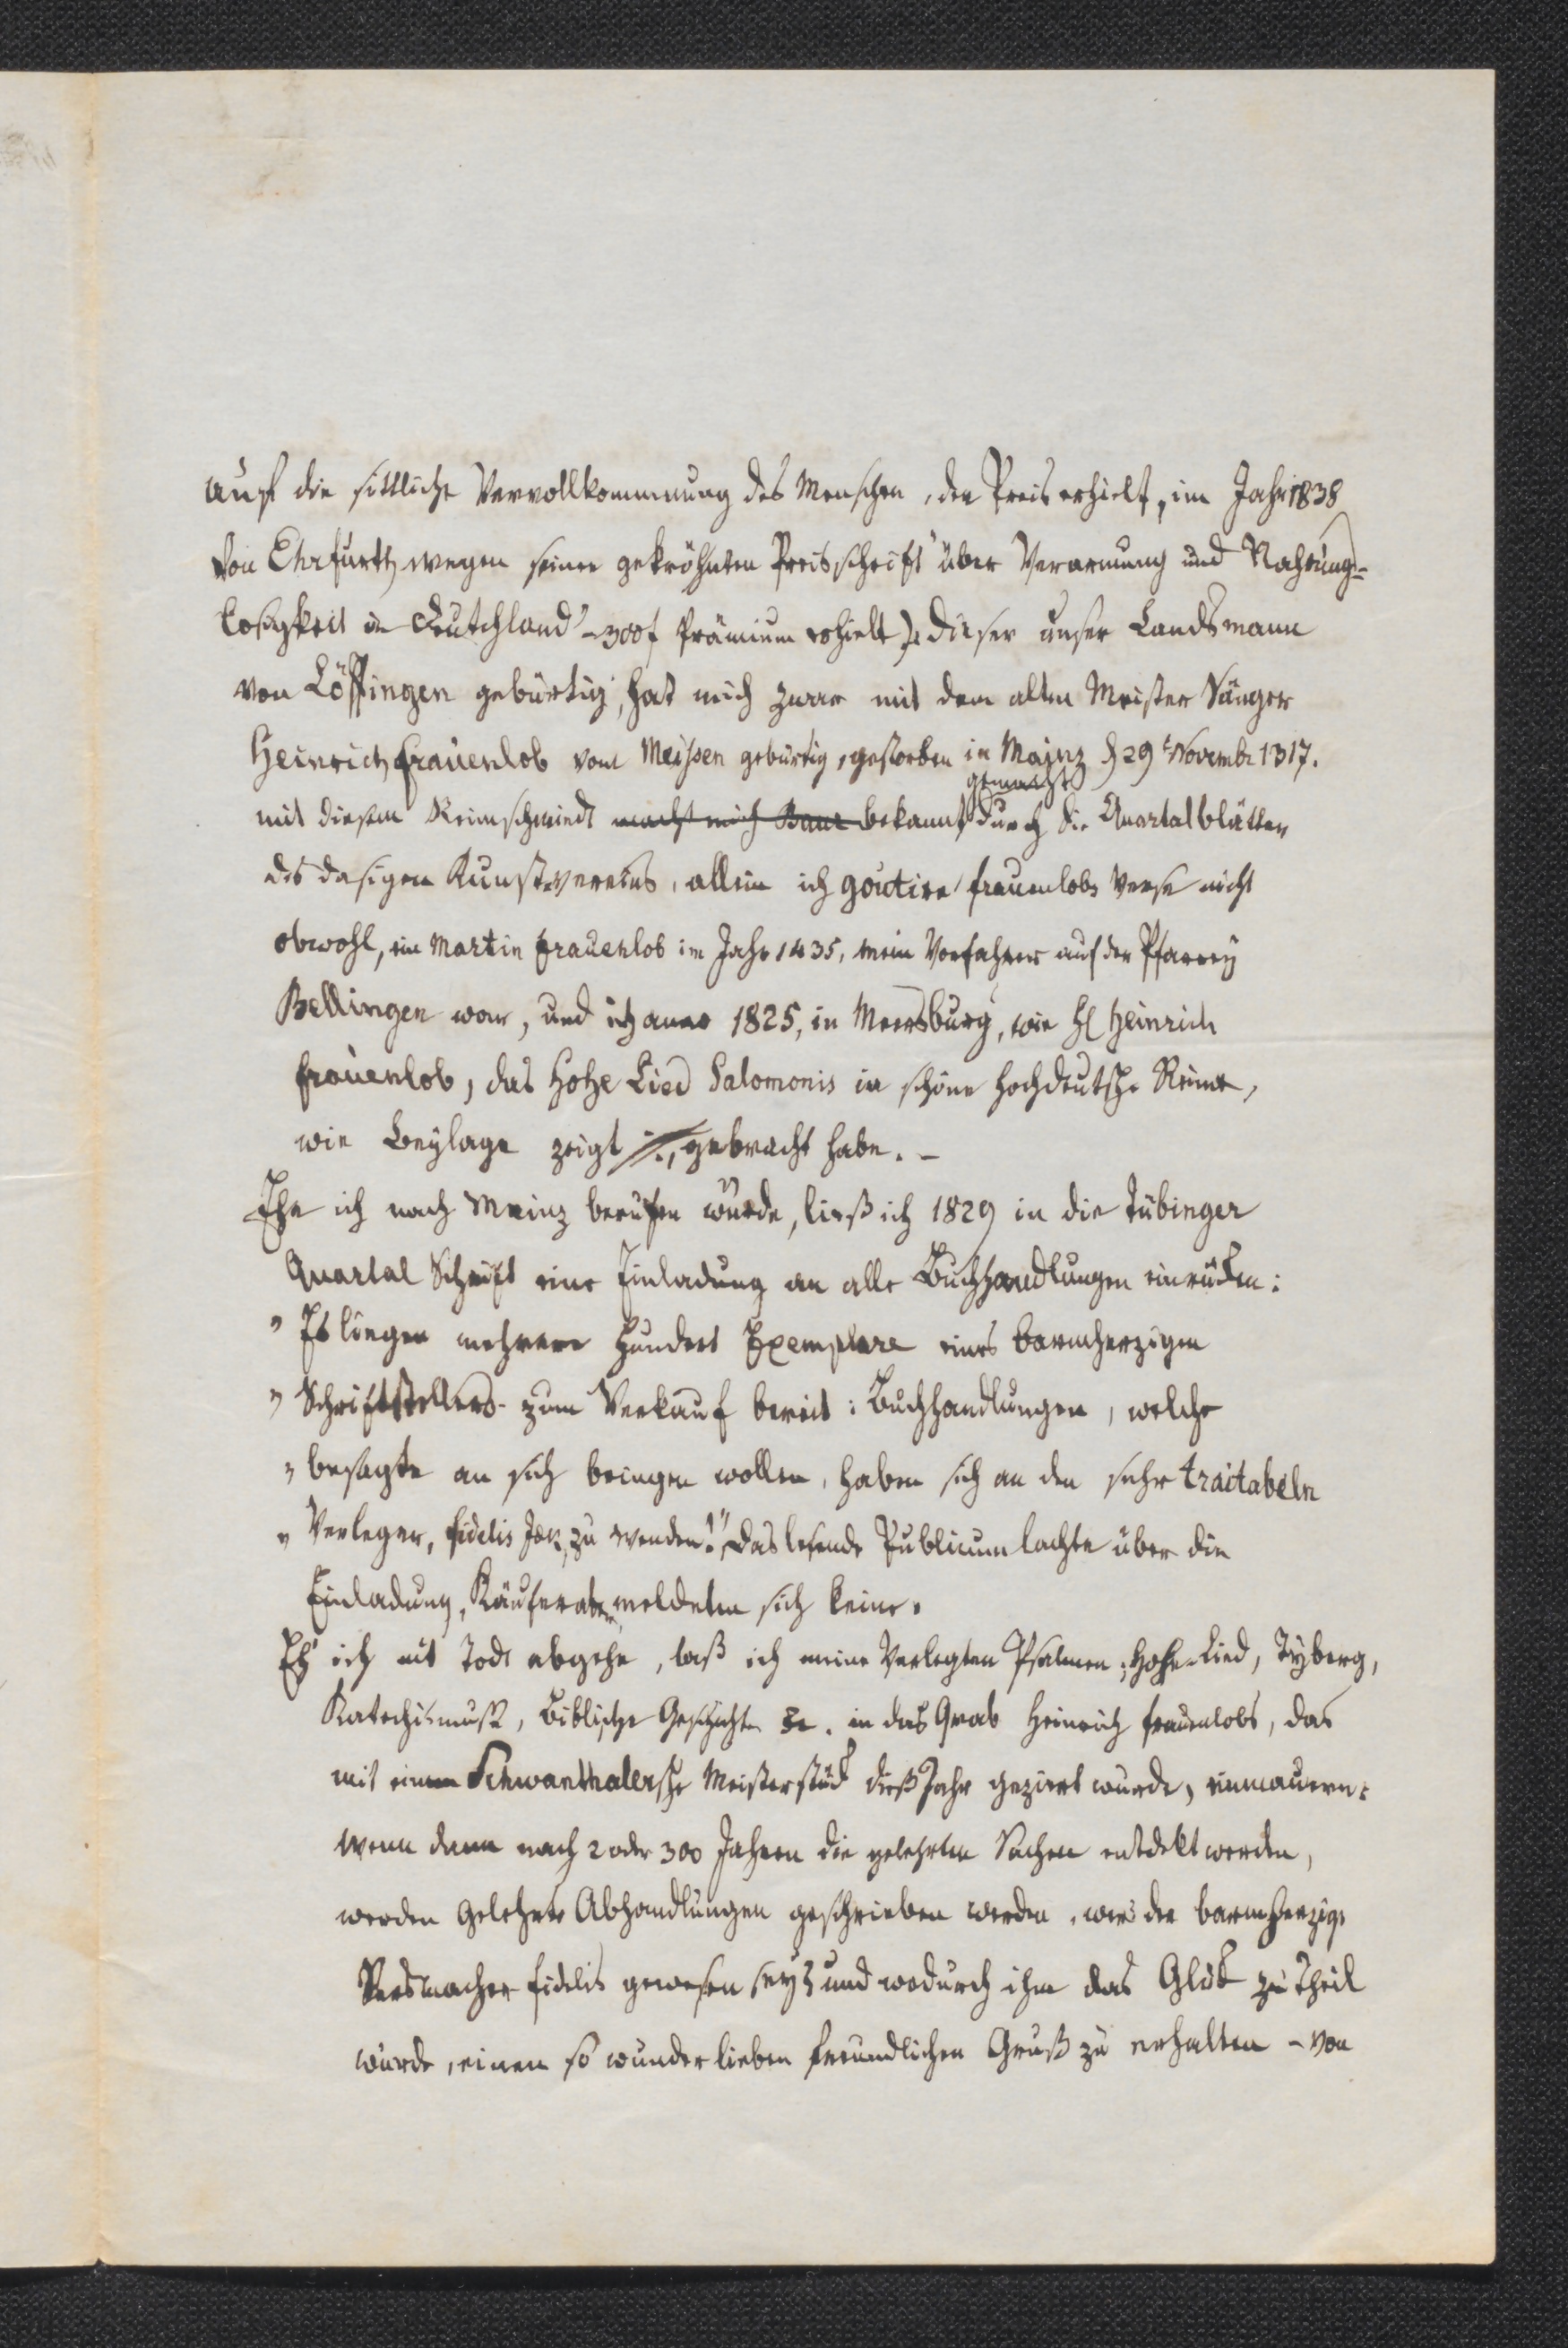 auf die sittliche Vervollkommnung des Menschen, den Preis erhielt, im Jahr 1838
von Ehrfurth wegen seiner gekröhnten Preisschrift "über Verarmung und Nahrung-
losigkeit in Deutchland" - 300 f Prämium erhielt) dieser unser Landsmann
von Löffingen gebürtig, hat mich zwar mit dem alten Meister Sänger
Heinrich Frauenlob von Meißen gebürtig, gestorben in Mainz d 29t Novembr 1317.
mit diesem Reimschmidt macht mich Baur bekannt gemacht durch die Quartalblätter
des dasigen Kunstvereins, allein ich goutire frauenlobs Verse nicht
obwohl, ein Martin Frauenlob im Jahr 1435, mein Vorfahrer auf der Pfarrey
Bellingen war, und ich anno 1825, in Meersburg, wie H Heinrich
frauenlob, das Hohe Lied Salomonis in schöne hochdeutsche Reime,
wie Beylage zeigt ·/., gebracht habe. -
Ehe ich nach Mainz berufen wurde, ließ ich 1829 in die Tübinger
Quartal Schrift eine Einladung an alle Buchhandlungen einrücken:
" Es liegen mehrere Hundert Exemplare eines barmherzigen
" Schriftstellers - zum Verkauf bereit: Buchhandlungen, welche
" besagte an sich bringen wollen, haben sich an den sehr traitabeln
" Verleger, fidelis Jck, zu wenden!" Das lesende Publicum lachte über die
Einladung, Käufer aber meldeten sich keine.
Eh' ich mit Tode abgehe, laß ich meine Verlegten Psalmen, Hohe-Lied, Tyberg,
Katechismuß, Biblische Geschichte &c. in das Grab Heinrich frauenlobs, das
mit einem Schwanthalersche Meisterstück dieß Jahr geziert wurde, einmauern:
wenn dann nach 2 oder 300 Jahren die gelehrten Sachen entdekt werden,
werden gelehrte Abhandlungen geschrieben werden, wer der barmherzige
Versmacher fidelis gewesen sey? und wodurch ihm das Glük zu Theil
wurde, einen so wunder lieben freundlichen Gruß zu erhalten - von